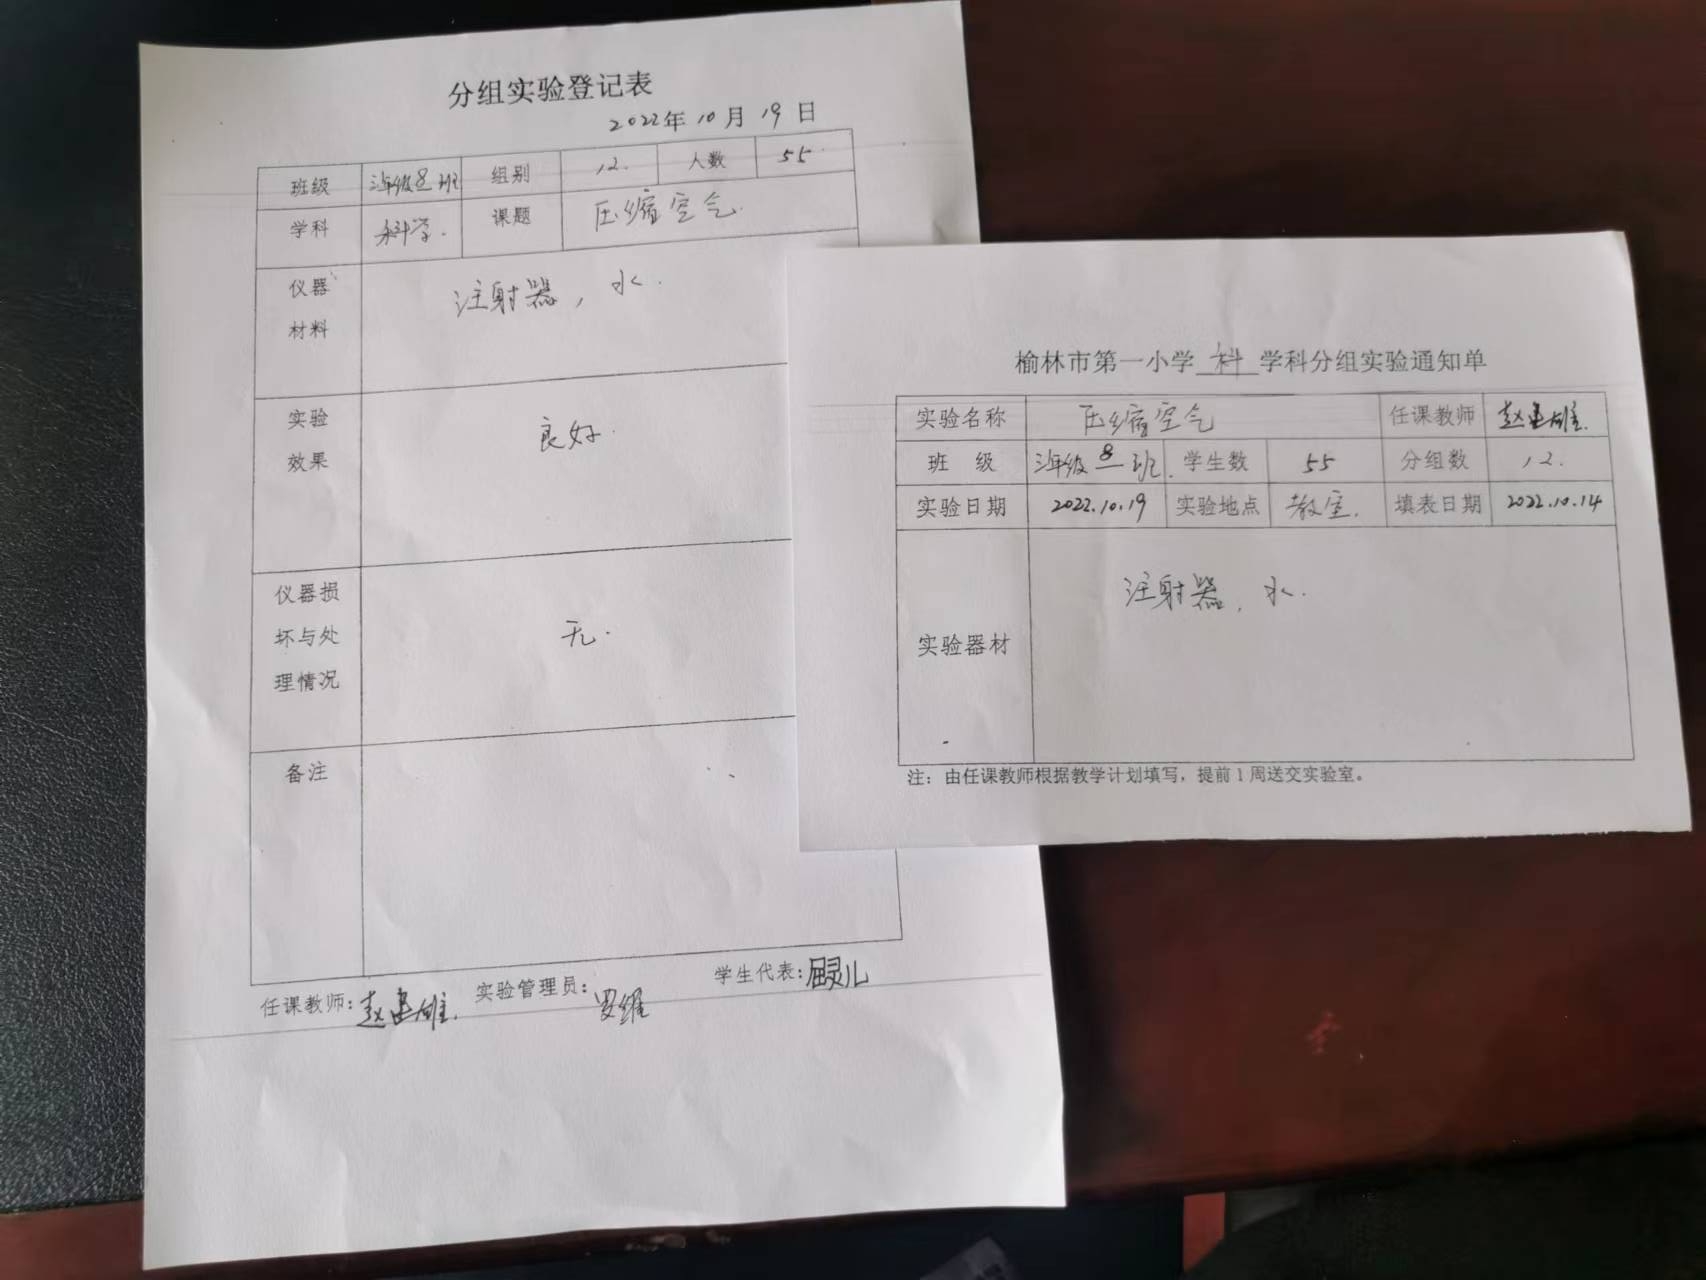 分组实验登记表
2022年10月19日
班级 三年级8班 组别 12. 人数 55
学科 科学. 课题 压缩空气.
仪器材料 注射器, 水.
实验效果 良好.
仪器损坏与处理情况 无.
备注
任课教师: 赵 雄. 实验管理员: 罗维 学生代表: 屈灵儿
榆林市第一小学 科 学科分组实验通知单
实验名称 压缩空气 任课教师 赵 雄.
班 级 三年级8班. 学生数 55 分组数 12.
实验日期 2022.10.19 实验地点 教室. 填表日期 2022.10.14
实验器材 注射器, 水.
注：由任课教师根据教学计划填写，提前1周送交实验室。